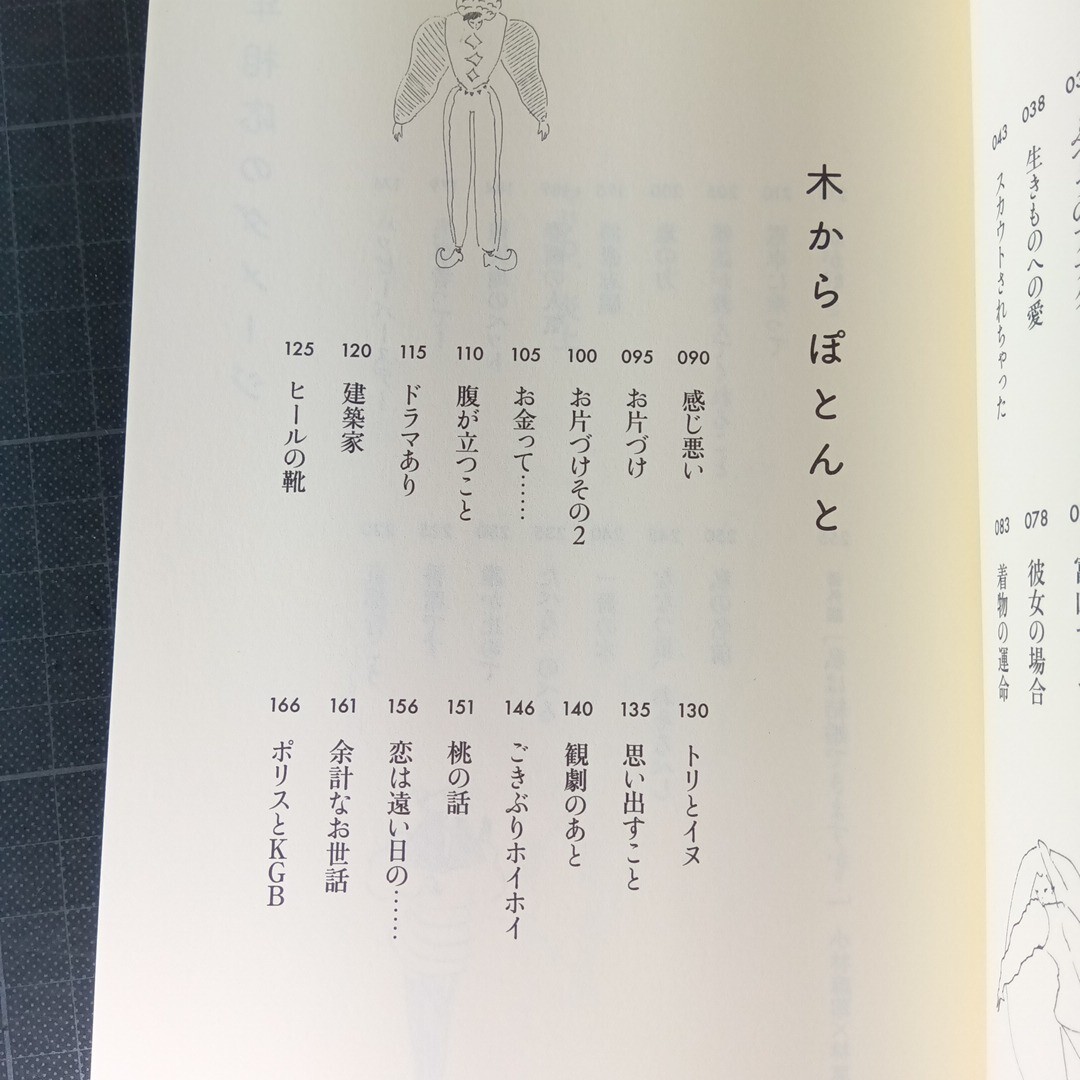 038 生きものへの愛
043 スカウトされちゃった
078 彼女の場合
083 着物の運命
木からぽとんと
090 感じ悪い
095 お片づけ
100 お片づけその2
105 お金って……
110 腹が立つこと
115 ドラマあり
120 建築家
125 ヒールの靴
130 トリとイヌ
135 思い出すこと
140 観劇のあと
146 ごきぶりホイホイ
151 桃の話
156 恋は遠い日の……
161 余計なお世話
166 ポリスとKGB